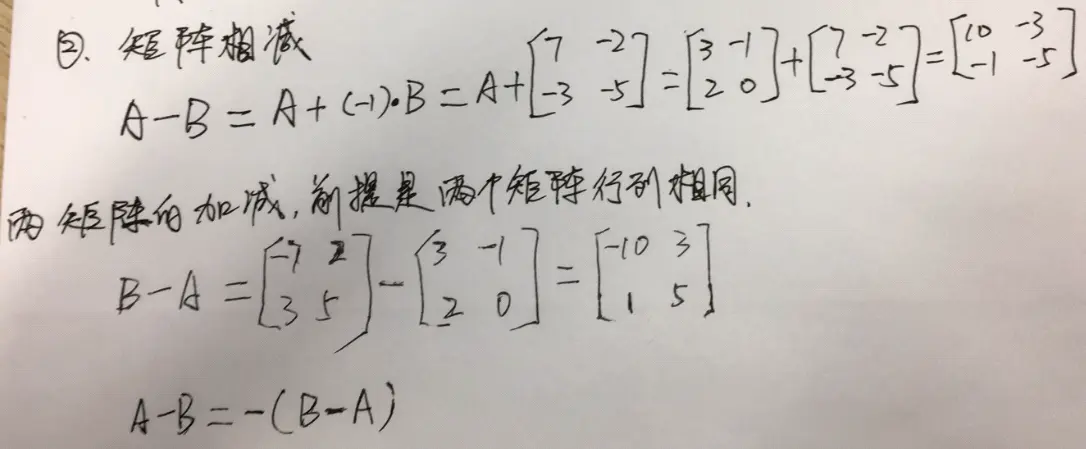 ②. 矩阵相减
A-B = A+(-1)·B = A+[7 -2; -3 -5] = [3 -1; 2 0]+[7 -2; -3 -5] = [10 -3; -1 -5]
两矩阵的加减, 前提是两个矩阵行列相同.
B-A = [-7 2; 3 5]-[3 -1; 2 0] = [-10 3; 1 5]
A-B = -(B-A)